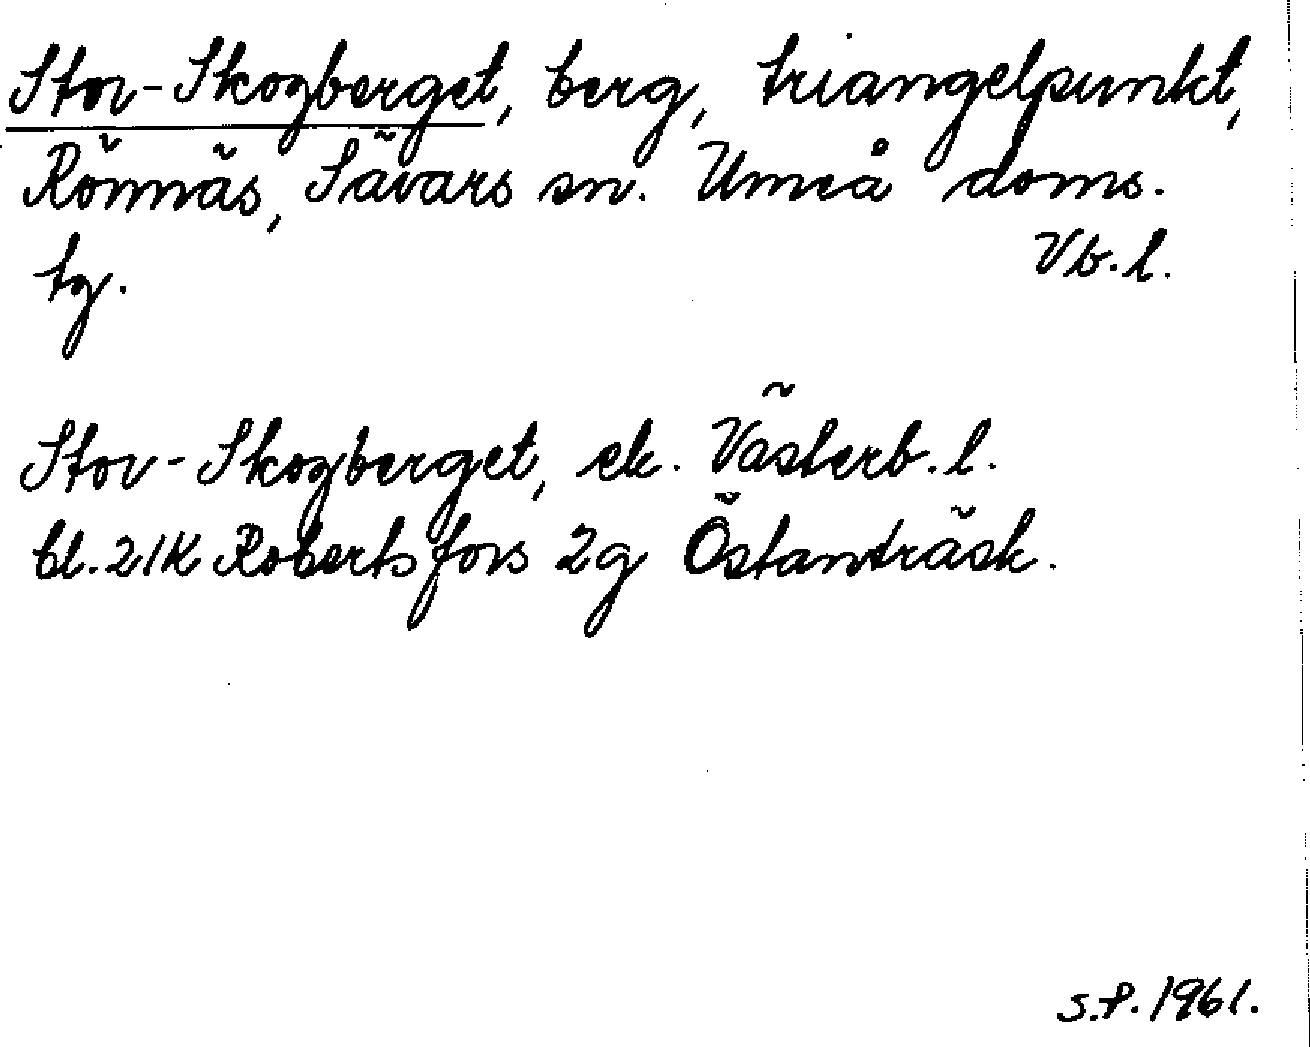 Stor-Skogberget, berg, triangelpunkt,
Rönnäs, Sävars sn. Umeå doms.
tg. Vb.l.
Stor-Skogberget, ek. Västerb.l.
bl. 21K Robertsfors 2g Östanträsk.
S.P. 1961.